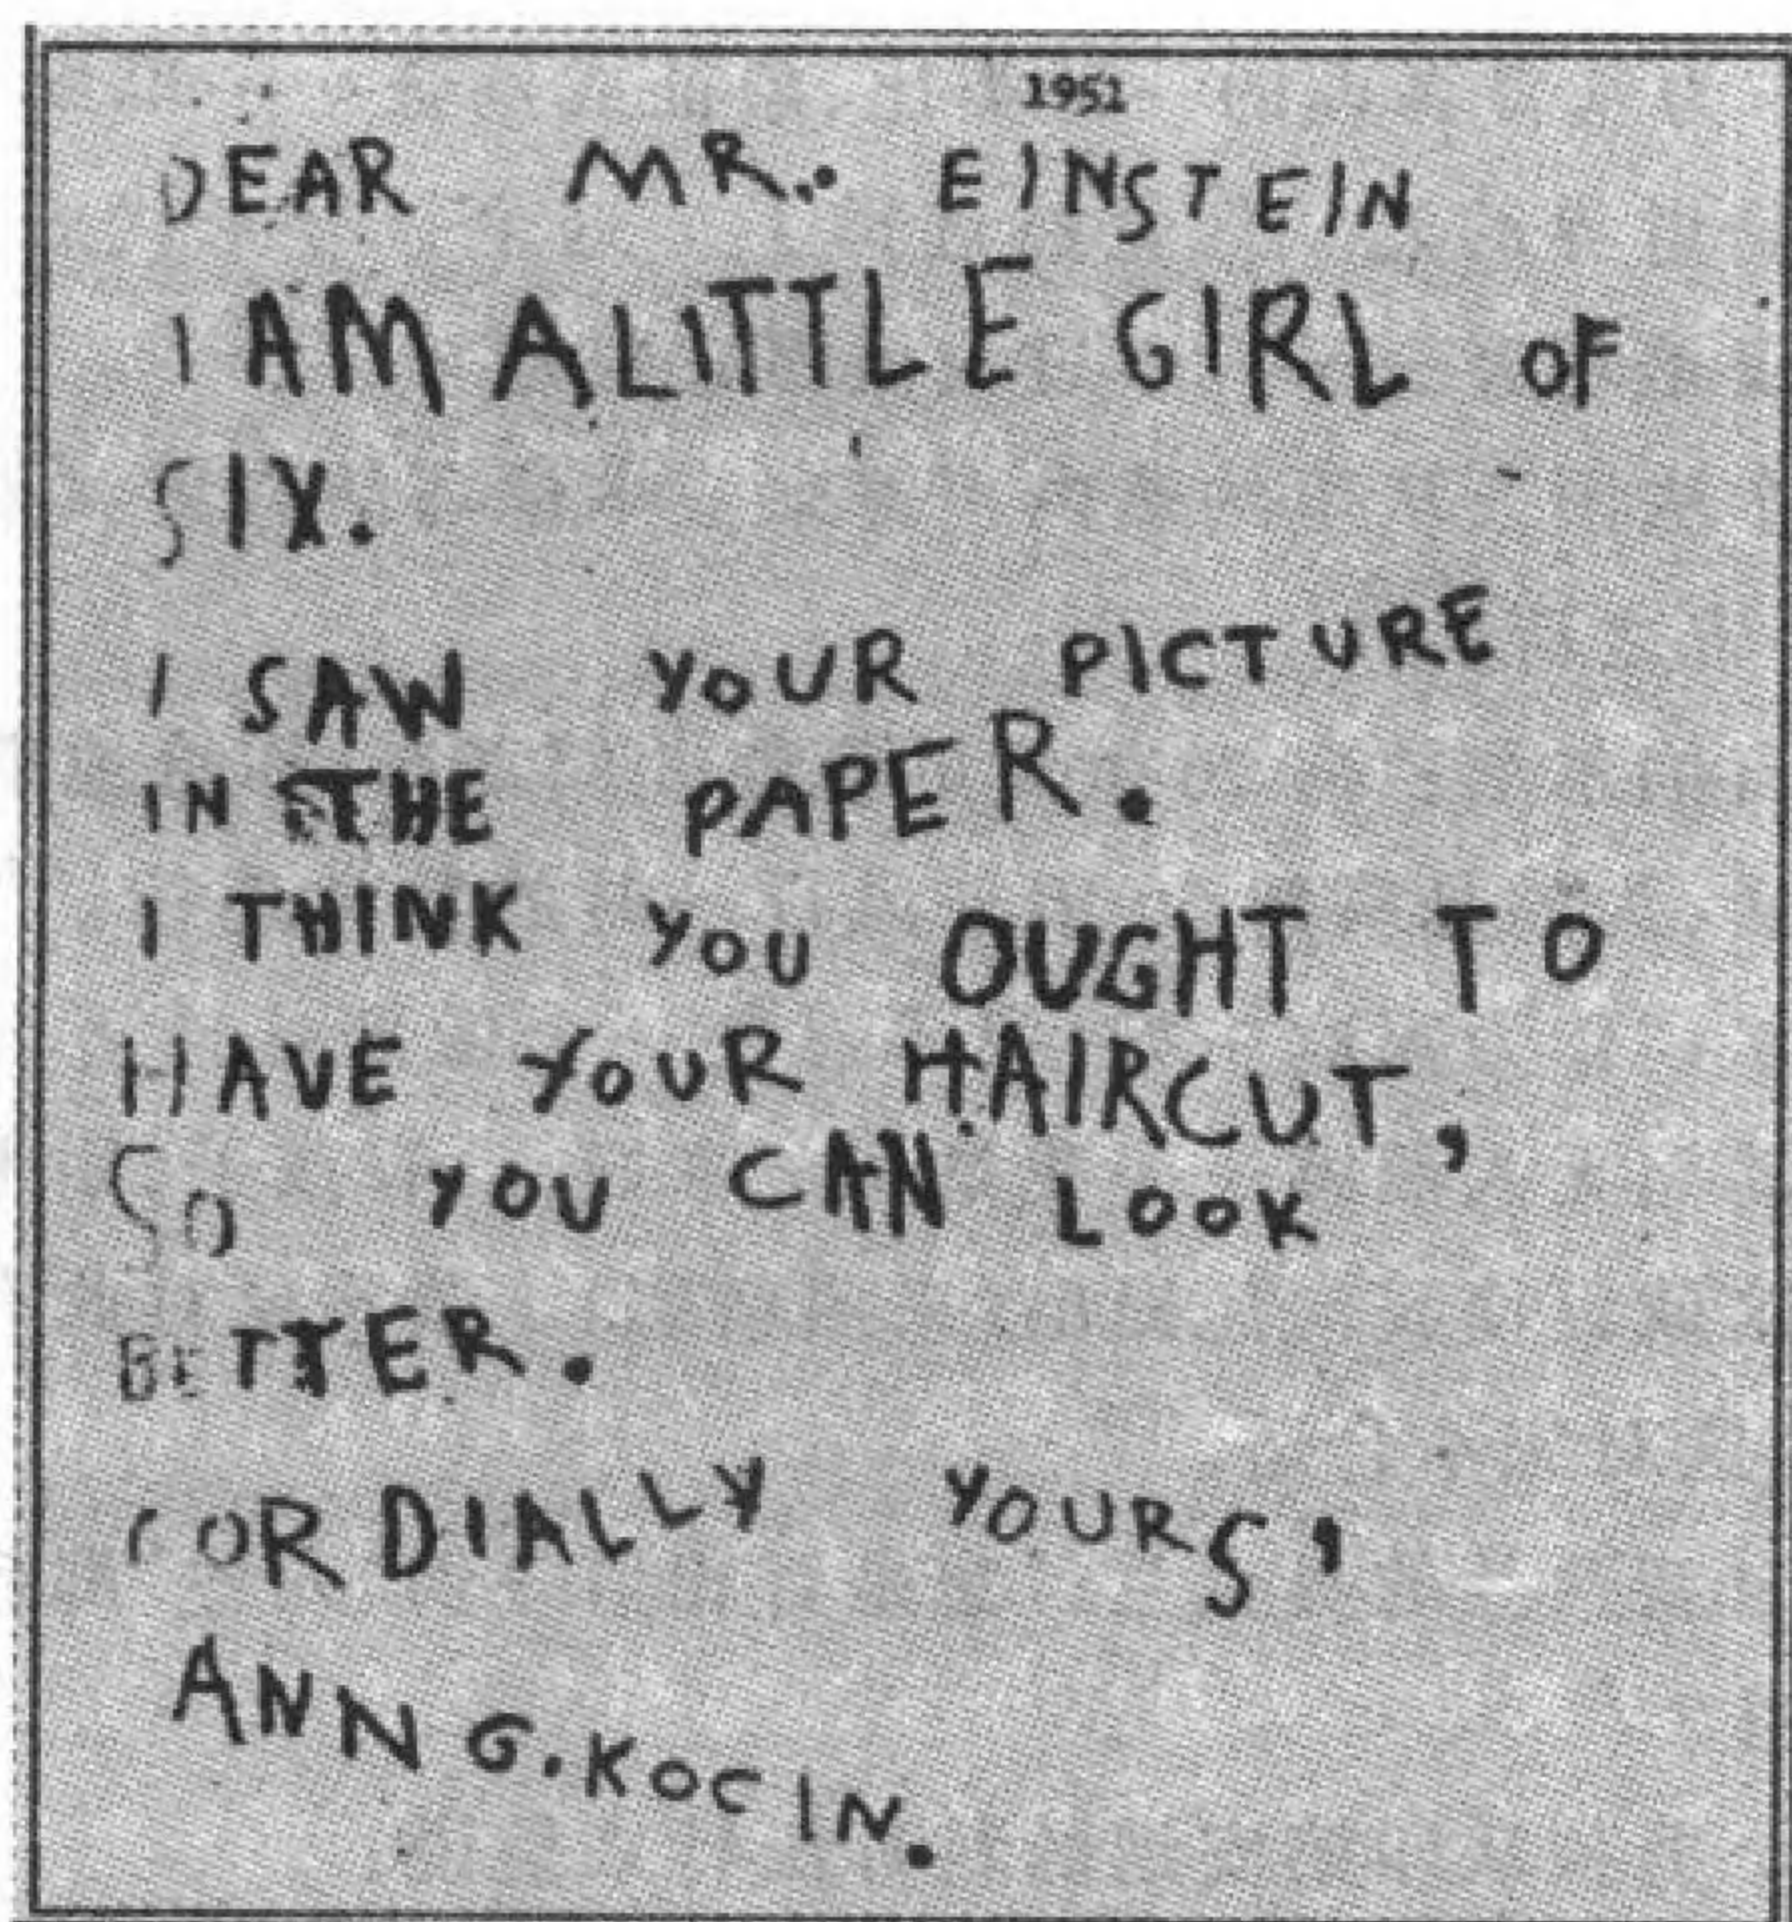 1951
DEAR MR.. EINSTEIN
I AM A LITTLE GIRL OF
SIX.
I SAW YOUR PICTURE
IN THE PAPER.
I THINK YOU OUGHT TO
HAVE YOUR HAIRCUT,
SO YOU CAN LOOK
BETTER.
CORDIALLY YOURS,
ANN G. KOCIN.